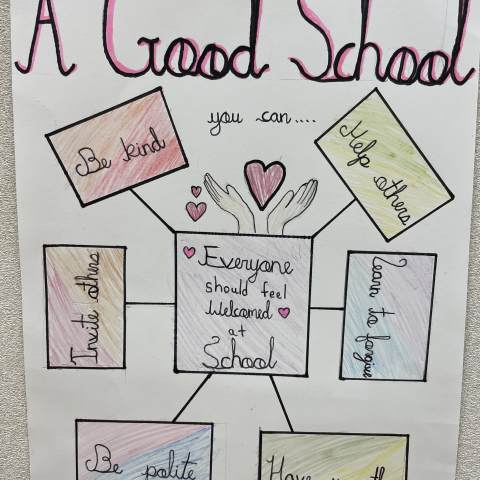 A Good School
you can....
Be kind
Help others
Everyone
should feel
Welcomed
at
School
Invite others
Learn to forgive
Be polite
Have